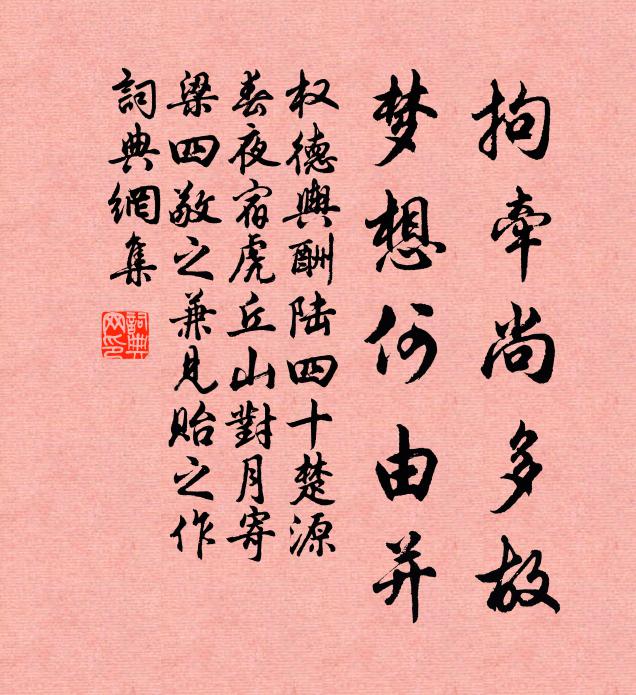 拘牽尚多故
梦想何由并
权德輿酬陆四十楚源
春夜宿虎丘山對月寄
梁四敬之兼見貽之作
詞典網集
詞典網印